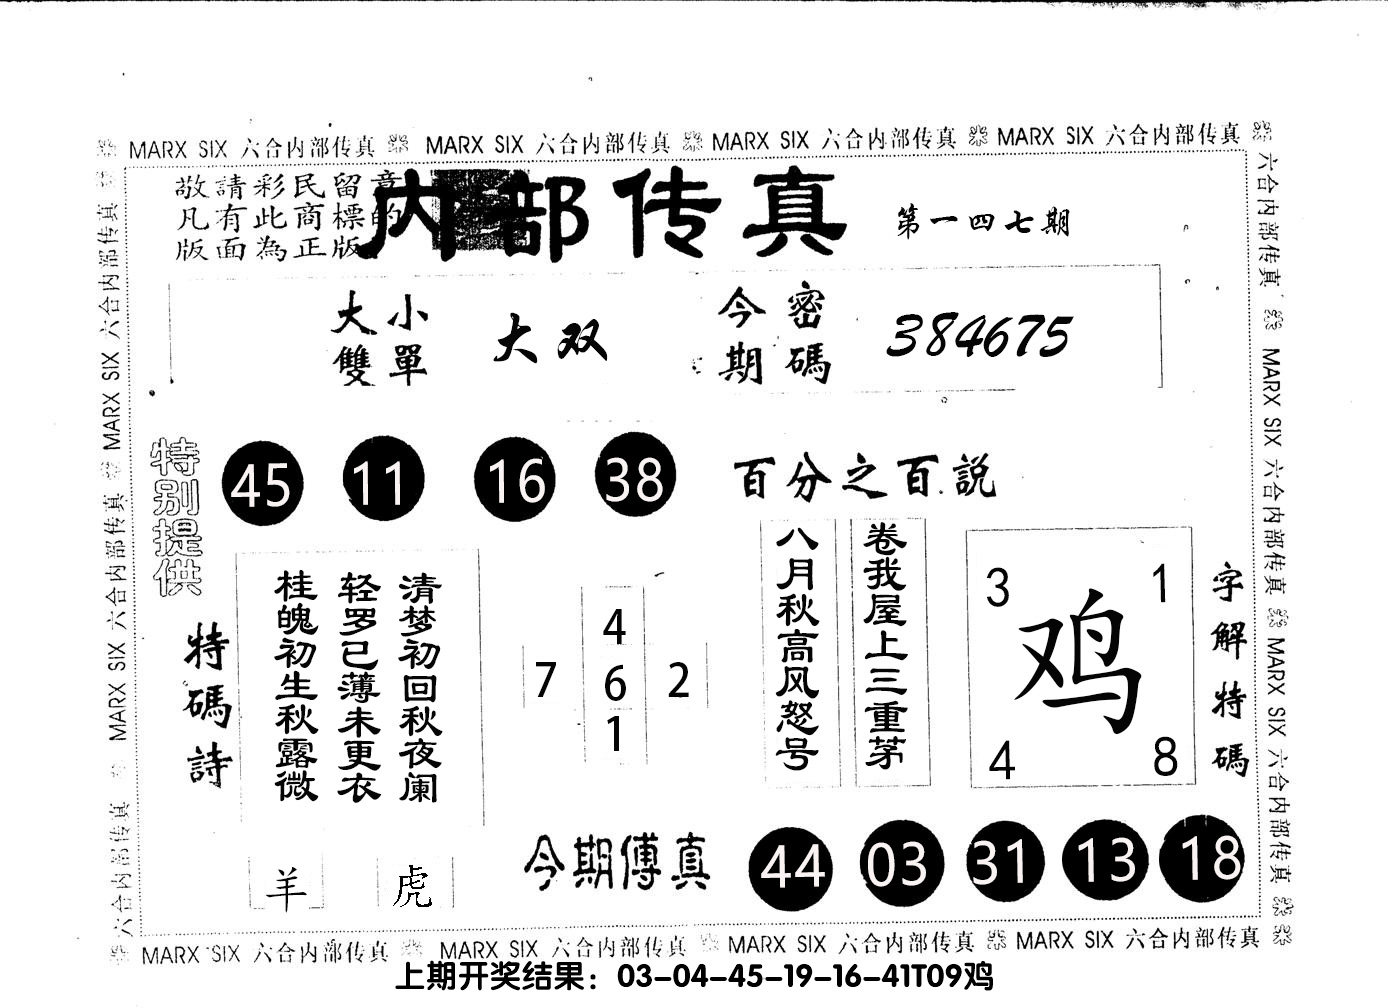 MARX SIX 六合内部传真 MARX SIX 六合内部传真 MARX SIX 六合内部传真 MARX SIX 六合内部传真
敬請彩民留意
凡有此商標的
版面為正版
内部传真
第一四七期
大小
雙單
大双
今密
期碼
384675
特别提供
45 11 16 38
百分之百説
特碼詩
清梦初回秋夜阑
轻罗已薄未更衣
桂魄初生秋露微
4
7 6 2
1
八月秋高风怒号
卷我屋上三重茅
3 1
鸡
4 8
字解特碼
羊 虎
今期傳真
44 03 31 13 18
六合内部传真 MARX SIX 六合内部传真 MARX SIX 六合内部传真
六合内部传真 MARX SIX 六合内部传真 MARX SIX 六合内部传真
MARX SIX 六合内部传真 MARX SIX 六合内部传真 MARX SIX 六合内部传真 MARX SIX 六合内部传真
上期开奖结果：03-04-45-19-16-41T09鸡